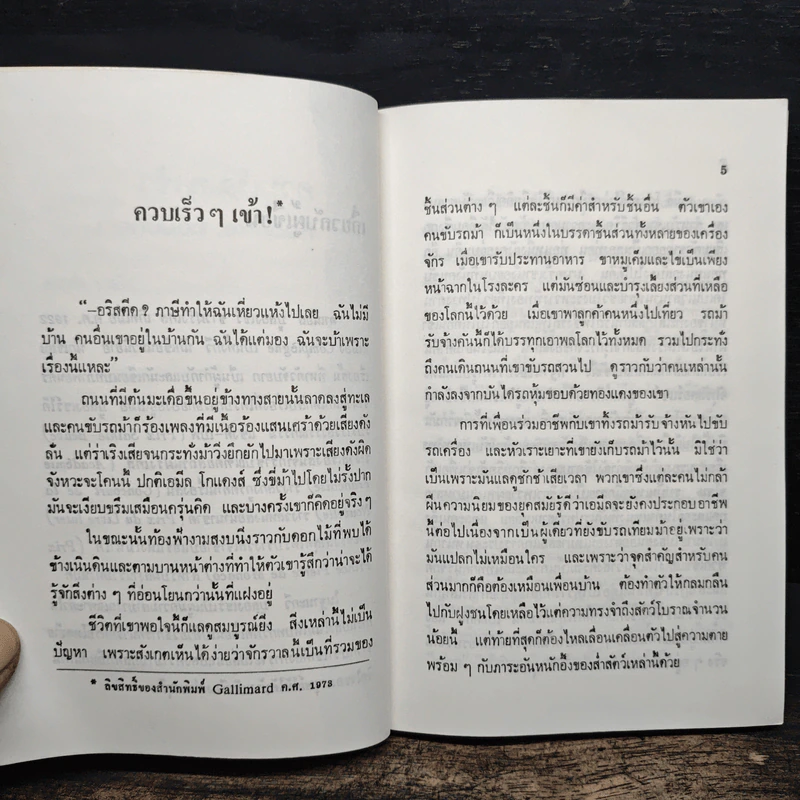 ควบเร็วๆ เข้า!*
"–อริสตีด? ภาษีทำให้ฉันเหี่ยวแห้งไปเลย ฉันไม่มี
บ้าน คนอื่นเขาอยู่ในบ้านกัน ฉันได้แต่มอง ฉันจะบ้าเพราะ
เรื่องนี้แหละ"
ถนนที่มีต้นมะเดื่อขึ้นอยู่ข้างทางสายนั้นลาดลงสู่ทะเล
และคนขับรถม้าก็ร้องเพลงที่มีเนื้อร้องแสนเศร้าด้วยเสียงดัง
ลั่น แต่ร่าเริงเสียจนกระทั่งม้าวิ่งยึกยักไปมาเพราะเสียงดังผิด
จังหวะจะโคนนี้ ปกติเอมีล โกแดงส์ ซึ่งขี่ม้าไปโดยไม่รั้งปาก
มันจะเงียบขรึมเสมือนครุ่นคิด และบางครั้งเขาก็คิดอยู่จริงๆ
ในขณะนั้นท้องฟ้างามสงบนิ่งราวกับดอกไม้ที่พบได้
ข้างเนินดินและตามบานหน้าต่างที่ทำให้ตัวเขารู้สึกว่าน่าจะได้
รู้จักสิ่งต่าง ๆ ที่อ่อนโยนกว่านั้นที่แฝงอยู่
ชีวิตที่เขาพอใจนี้ก็แลดูสมบูรณ์ยิ่ง สิ่งเหล่านี้ไม่เป็น
ปัญหา เพราะสังเกตเห็นได้ง่ายว่าจักรวาลนี้เป็นที่รวมของ
* ลิขสิทธิ์ของสำนักพิมพ์ Gallimard ค.ศ. 1973
5
ชิ้นส่วนต่าง ๆ แต่ละชิ้นก็มีค่าสำหรับชิ้นอื่น ตัวเขาเอง
คนขับรถม้า ก็เป็นหนึ่งในบรรดาชิ้นส่วนทั้งหลายของเครื่อง
จักร เมื่อเขารับประทานอาหาร ขาหมูเค็มและไข่เป็นเพียง
หน้าฉากในโรงละคร แต่มันซ่อนและบำรุงเลี้ยงส่วนที่เหลือ
ของโลกนี้ไว้ด้วย เมื่อเขาพาลูกค้าคนหนึ่งไปเที่ยว รถม้า
รับจ้างคันนี้ก็ได้บรรทุกเอาพลโลกไว้ทั้งหมด รวมไปกระทั่ง
ถึงคนเดินถนนที่เขาขับรถสวนไป ดูราวกับว่าคนเหล่านั้น
กำลังลงจากบันไดรถหุ้มขอบด้วยทองแดงของเขา
การที่เพื่อนร่วมอาชีพกับเขาทิ้งรถม้ารับจ้างหันไปขับ
รถเครื่อง และหัวเราะเยาะที่เขายังเก็บรถม้าไว้นั้น มิใช่ว่า
เป็นเพราะมันแลดูชักช้าเสียเวลา พวกเขาซึ่งแต่ละคนไม่กล้า
ฝืนความนิยมของยุคสมัยรู้ดีว่าเอมีลจะยังคงประกอบอาชีพ
นี้ต่อไปเนื่องจากเป็นผู้เดียวที่ยังขับรถเทียมม้าอยู่เพราะว่า
มันแปลกไม่เหมือนใคร และเพราะว่าจุดสำคัญสำหรับคน
ส่วนมากก็คือต้องเหมือนเพื่อนบ้าน ต้องทำตัวให้กลมกลืน
ไปกับฝูงชนโดยเหลือไว้แต่ความทรงจำถึงสัตว์โบราณจำนวน
น้อยนี้ แต่ท้ายที่สุดก็ต้องไหลเลื่อนเคลื่อนตัวไปสู่ความตาย
พร้อม ๆ กับภาระอันหนักอึ้งของส่ำสัตว์เหล่านี้ด้วย